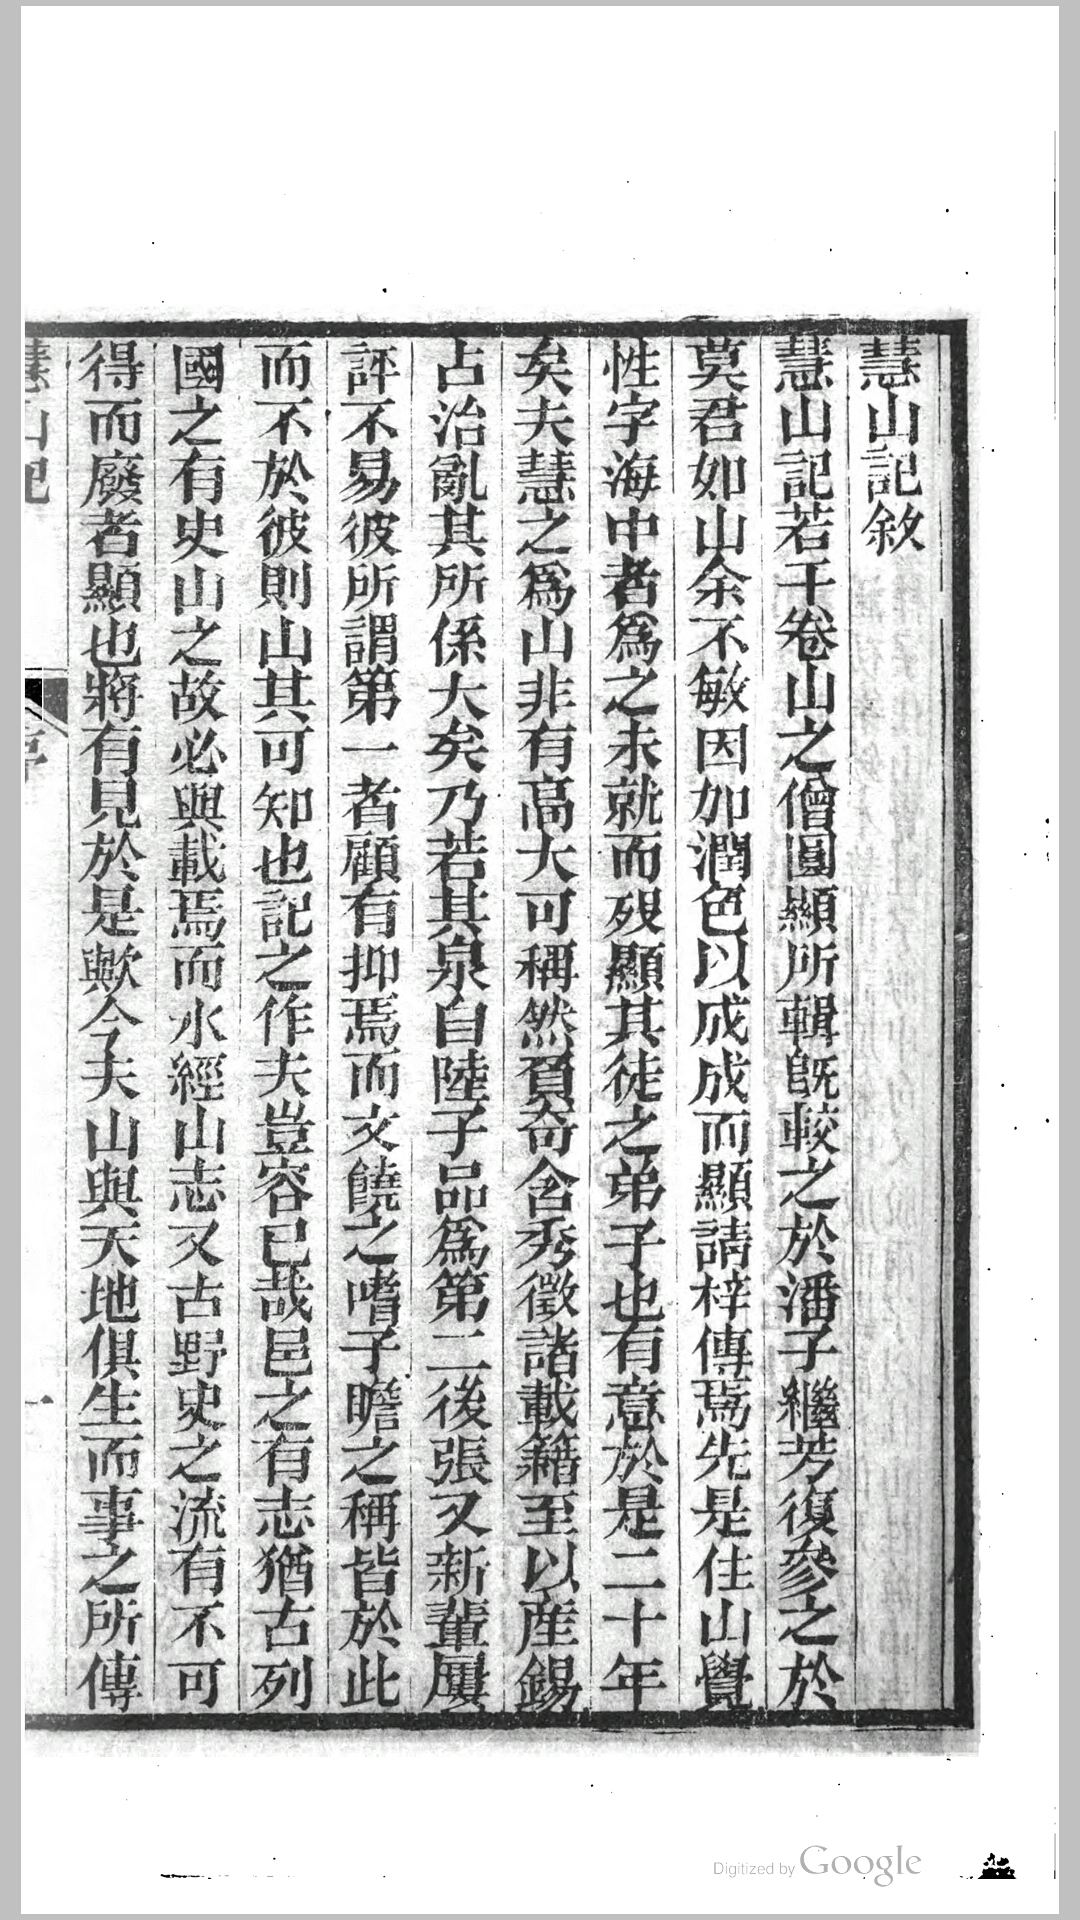 慧山記敘
慧山記若干卷山之僧圓顯所輯旣較之於潘子繼芳復參之於
莫君如山余不敏因加潤色以成成而顯請梓傳焉先是住山覺
性字海中者爲之未就而歿顯其徒之弟子也有意於是二十年
矣夫慧之爲山非有高大可稱然負奇含秀徵諸載籍至以産錫
占治亂其所係大矣乃若其泉自陸子品爲第二後張又新輩屢
評不易彼所謂第一者顧有抑焉而文饒之嗜子瞻之稱皆於此
而不於彼則山其可知也記之作夫豈容已哉邑之有志猶古列
國之有史山之故必與載焉而水經山志又古野史之流有不可
得而廢者顯也將有見於是歟今夫山與天地俱生而事之所傳
慧山記
序
一
Digitized by Google